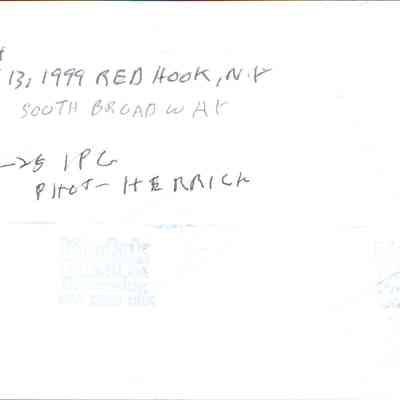 13, 1999 RED HOOK, N.Y
SOUTH BROADWAY
-25 1PG
PHOT- HERRICK